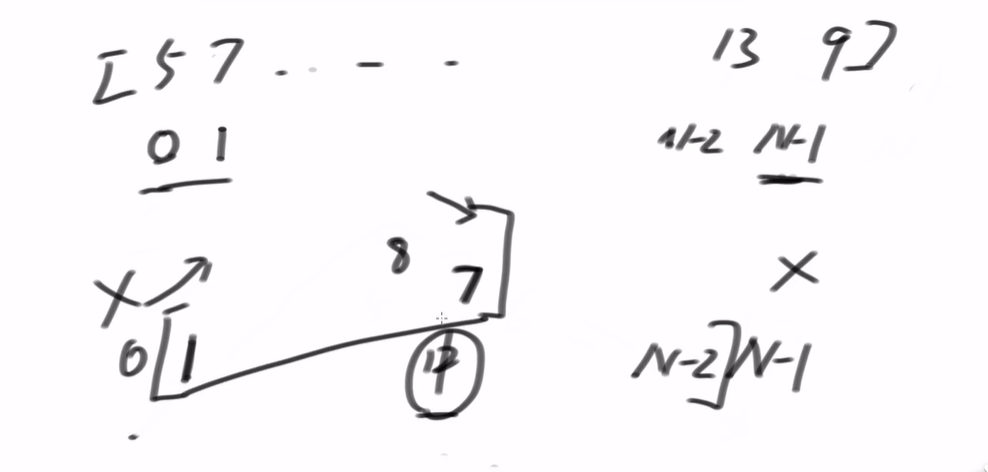 [ 5 7 . . - . 13 9 ]
0 1 N-2 N-1
8
7
X X
0 [ 1 N-2 ] N-1